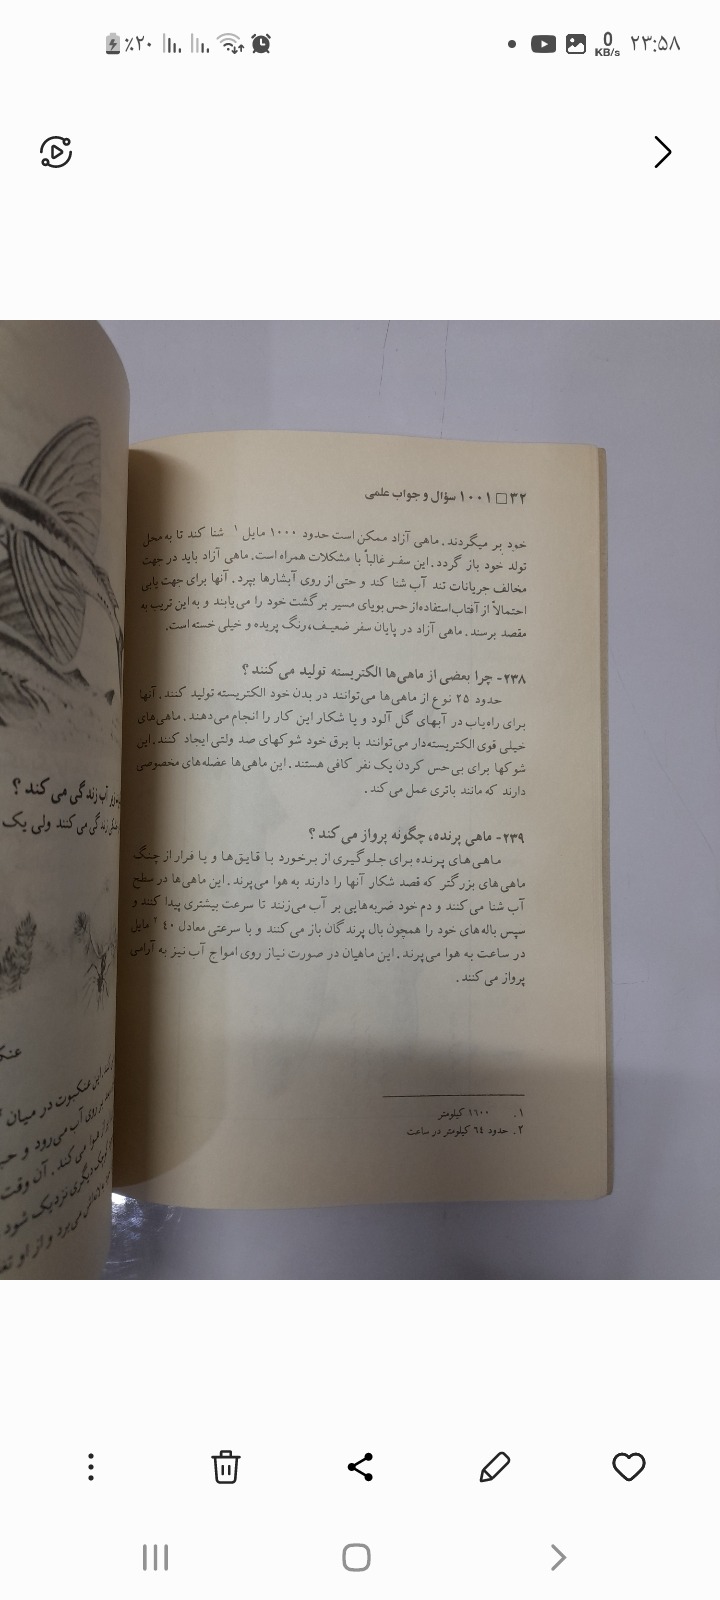 ٪۲۰
0
KB/s
۲۳:۵۸
۳۲ □ ۱۰۰۱ سؤال و جواب علمی
خود بر میگردند. ماهی آزاد ممکن است حدود ۱۰۰۰ مایل ۱ شنا کند تا به محل
تولد خود باز گردد. این سفر غالباً با مشکلات همراه است. ماهی آزاد باید در جهت
مخالف جریانات تند آب شنا کند و حتی از روی آبشارها بپرد. آنها برای جهت یابی
احتمالاً از آفتاب استفاده از حس بویای مسیر برگشت خود را می‌یابند و به این تریب به
مقصد برسند. ماهی آزاد در پایان سفر ضعیف، رنگ پریده و خیلی خسته است.
۲۳۸- چرا بعضی از ماهی‌ها الکتریسته تولید می‌کنند؟
حدود ۲۵ نوع از ماهی‌ها می‌توانند در بدن خود الکتریسته تولید کنند. آنها
برای راه‌یاب در آبهای گل آلود و یا شکار این کار را انجام می‌دهند. ماهی‌های
خیلی قوی الکتریسته‌دار می‌توانند با برق خود شوکهای صد ولتی ایجاد کنند. این
شوکها برای بی‌حس کردن یک نفر کافی هستند. این ماهی‌ها عضله‌های مخصوصی
دارند که مانند باتری عمل می‌کند.
۲۳۹- ماهی پرنده، چگونه پرواز می‌کند؟
ماهی‌های پرنده برای جلوگیری از برخورد با قایق‌ها و یا فرار از چنگ
ماهی‌های بزرگتر که قصد شکار آنها را دارند به هوا می‌پرند. این ماهی‌ها در سطح
آب شنا می‌کنند و دم خود ضربه‌هایی بر آب می‌زنند تا سرعت بیشتری پیدا کنند و
سپس باله‌های خود را همچون بال پرندگان باز می‌کنند و با سرعتی معادل ۴۰ ۲ مایل
در ساعت به هوا می‌پرند. این ماهیان در صورت نیاز روی امواج آب نیز به آرامی
پرواز می‌کنند.
۱. ۱۶۰۰ کیلومتر
۲. حدود ۶۴ کیلومتر در ساعت
آب زندگی می‌کند؟
زندگی می‌کنند ولی یک
عنکبوت در میان
روی آب می‌رود و
هوا می‌کند. آن وقت
کوچک دیگری نزدیک شود
می‌برد و از او